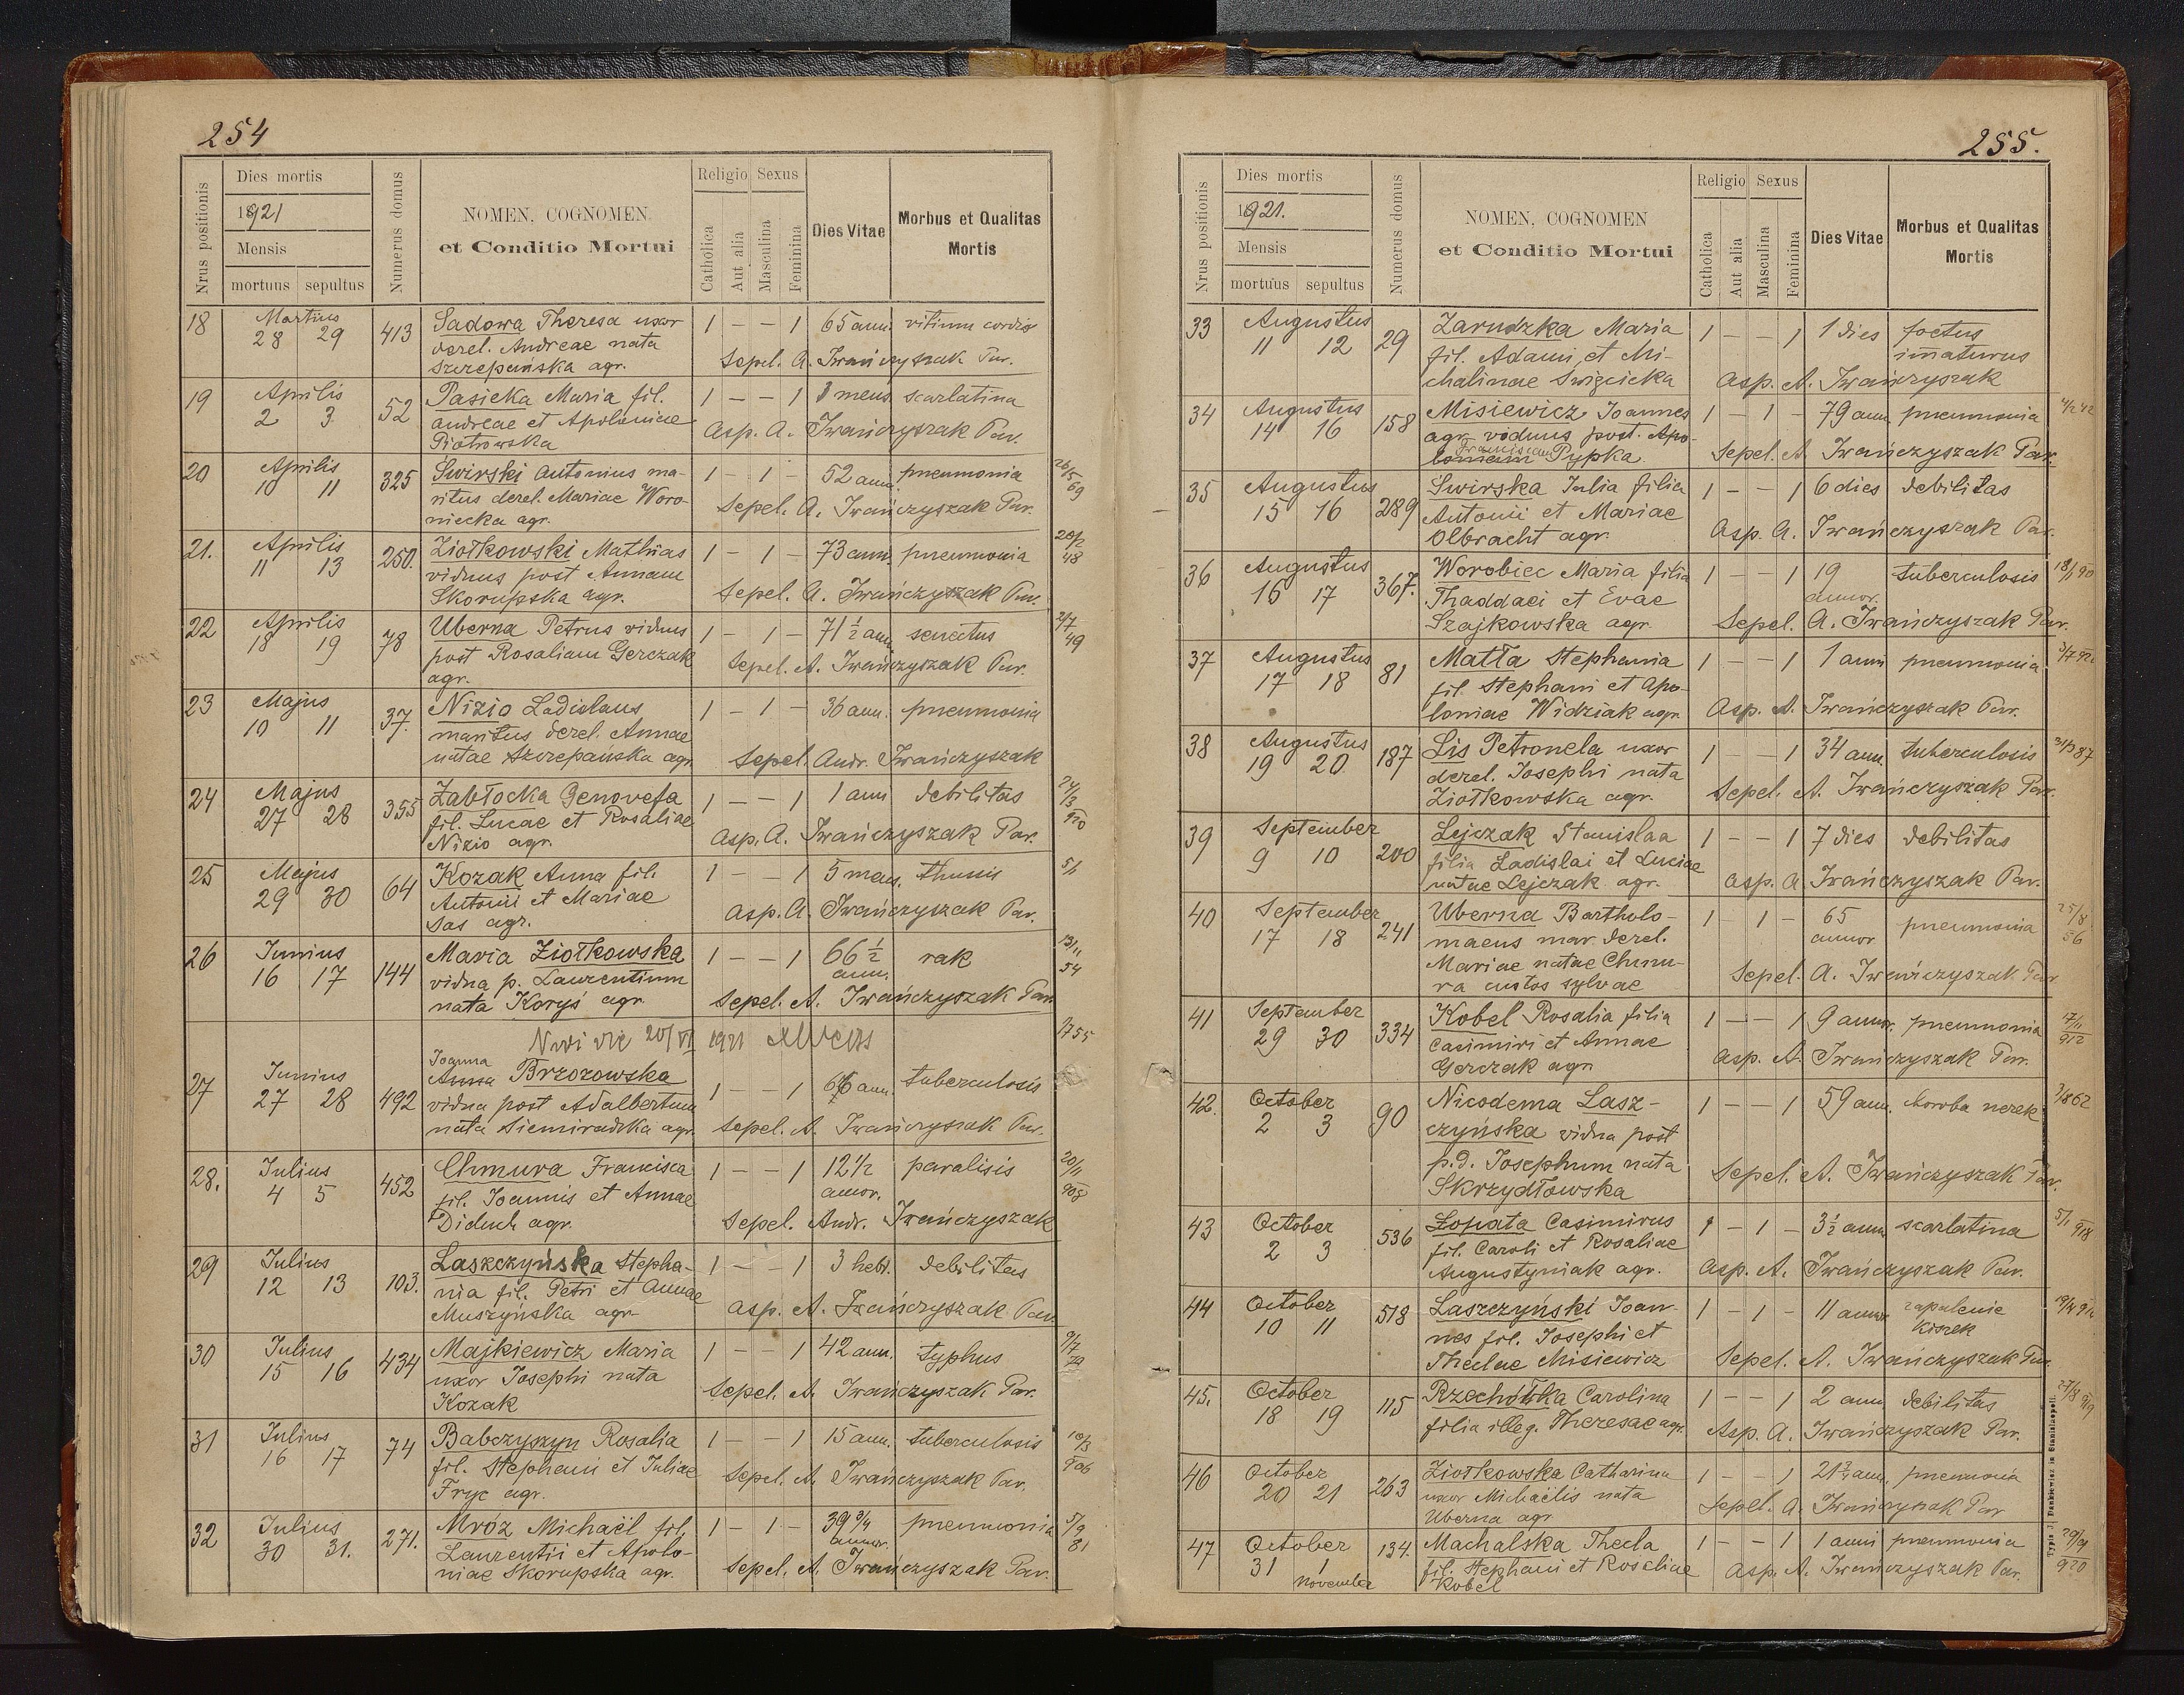 254
Nrus positionis
Dies mortis
1921
Mensis
mortuus sepultus
Numerus domus
NOMEN, COGNOMEN
et Conditio Mortui
Religio Sexus
Catholica
Aut alia
Masculina
Feminina
Dies Vitae
Morbus et Qualitas
Mortis
18 Martius 28 29 413 Sadowa Theresa uxor 1 – – 1 65 ann. vitium cordis
derel. Andreae nata
Szczepańska agr. Sepel. A. Iwańczyszak Par.
19 Aprilis 2 3 52 Pasieka Maria fil. 1 – – 1 mens. scarlatina
Andreae et Apoloniae
Piotrowska Asp. A. Iwańczyszak Par.
20 Aprilis 10 11 325 Świrski Antonius ma- 1 – 1 – 52 ann. pneumonia 26/5 69
ritus derel. Mariae Woro-
niecka agr. Sepel. A. Iwańczyszak Par.
21. Aprilis 11 13 250. Ziołkowski Mathias 1 – 1 – 73 ann. pneumonia 48
viduus post Annam
Skorupska agr. Sepel. A. Iwańczyszak Par.
22 Aprilis 18 19 78 Uberna Petrus viduus 1 – 1 – 71 1/2 ann. senectus 2/7 49
post Rosaliam Gerczak
agr. Sepel. A. Iwańczyszak Par.
23 Majus 10 11 37. Nizio Ladislaus 1 – 1 – 36 ann. pneumonia
maritus derel. Annae
natae Szczepańska agr. Sepel. Andr. Iwańczyszak
24 Majus 27 28 355 Zabłocka Genovefa 1 – – 1 1 ann debilitas 24/3 920
fil. Lucae et Rosaliae
Nizio agr. Asp. A. Iwańczyszak Par.
25 Majus 29 30 64 Kozak Anna fil. 1 – – 1 5 mens. thussis 5/1
Antonii et Mariae
Sas agr. Asp. A. Iwańczyszak Par.
26 Iunius 16 17 144 Maria Ziołkowska 1 – – 1 66 1/2 ann. rak 13/11 54
vidua p. Laurentium
nata Koryś agr. Sepel. A. Iwańczyszak Par.
20/VI 1921
55
27 Iunius 27 28 492 Joanna
Anna Brzozowska 1 – – 1 66 ann. tuberculosis
vidua post Adalbertum
nata Siemiradzka agr. Sepel. A. Iwańczyszak Par.
28. Iulius 4 5 452 Chmura Francisca 1 – – 1 12 1/2 annor. paralisis 20/11 908
fil. Ioannis et Annae
Diduch agr. Sepel. Andr. Iwańczyszak
29 Iulius 12 13 103. Laszczyńska Stepha- 1 – – 1 3 hebd. debilitas
nia fil. Petri et Annae
Muszyńska agr. Asp. A. Iwańczyszak Par.
30 Iulius 15 16 434 Majkiewicz Maria 1 – – 1 42 ann. typhus 9/7 79
uxor Iosephi nata
Kozak Sepel. A. Iwańczyszak Par.
31 Iulius 16 17 74 Babczyszyn Rosalia 1 – – 1 15 ann. tuberculosis 10/3 906
fil. Stephani et Iuliae
Fryc agr. Sepel. A. Iwańczyszak Par.
32 Iulius 30 31. 271. Mróz Michaël fil. 1 – 1 – 39 3/4 annor. pneumonia 5/9 81
Laurentii et Apolo-
niae Skorupska agr. Sepel. A. Iwańczyszak Par.
255.
Nrus positionis
Dies mortis
1921.
Mensis
mortuus sepultus
Numerus domus
NOMEN, COGNOMEN
et Conditio Mortui
Religio Sexus
Catholica
Aut alia
Masculina
Feminina
Dies Vitae
Morbus et Qualitas
Mortis
33 Augustus 11 12 29 Zarudzka Maria 1 – – 1 1 dies foetus
fil. Adami et Mi- immaturus
chalinae Swięcicka Asp. A. Iwańczyszak
34 Augustus 14 16 158 Misiewicz Ioannes 1 – 1 – 79 ann pneumonia 4/2 42
agr. viduus post. Apo-
Franciscam
loniam Pypka Sepel. A. Iwańczyszak Par.
35 Augustus 15 16 289 Swirska Iulia filia 1 – – 1 6 dies debilitas
Antonii et Mariae
Olbracht agr. Asp. A. Iwańczyszak Par.
36 Augustus 16 17 367. Worobiec Maria filia 1 – – 1 19 annor. tuberculosis
Thaddaei et Evae
Szajkowska agr. Sepel. A. Iwańczyszak Par.
37 Augustus 17 18 81 Matła Stephania 1 – – 1 1 anni pneumonia
fil. Stephani et Apo-
loniae Widziak agr. Asp. A. Iwańczyszak Par.
38 Augustus 19 20 187 Lis Petronela uxor 1 – 1 34 ann. tuberculosis 87
derel. Iosephi nata
Ziołkowska agr. Sepel. A. Iwańczyszak Par.
39 September 9 10 200 Lejczak Stanislaa 1 – – 1 7 dies debilitas
filia Ladislai et Luciae
natae Lejczak agr. Asp. A Iwańczyszak Par.
40 September 17 18 241 Uberna Bartholo- 1 1 – 65 annor pneumonia 25/8 56
maeus mar. derel.
Mariae natae Chmu-
ra custos sylvae Sepel. A. Iwańczyszak Par
41 September 29 30 334 Kobel Rosalia filia 1 – – 1 9 annor. pneumonia 17/11 912
Casimiri et Annae
Gerczak agr Asp. A. Iwańczyszak Par.
42. October 2 3 90 Nicodema Lasz- 1 – – 1 59 ann. choroba nerek 62
czyńska vidua post
p.d. Iosephum nata
Skrzydłowska Sepel. A. Iwańczyszak Par.
43 October 2 3 536 Łopata Casimirus 1 – 1 – 3 1/2 ann. scarlatina 5/1 918
fil. Caroli et Rosaliae
Augustyniak agr. Asp. A. Iwańczyszak Par.
44 October 10 11 518 Laszczyński Ioan- 1 – 1 – 11 annor zapalenie
nes fil. Iosephi et kiszek
Theclae Misiewicz Sepel. A. Iwańczyszak Par.
45. October 18 19 115 Rzechółka Carolina 1 – – 1 2 ann debilitas 27/8 919
filia illeg. Theresae agr. Asp. A. Iwańczyszak Par.
46 October 20 21 263 Ziołkowska Catharina 1 – – 1 21 3/4 ann. pneumonia
uxor Michaëlis nata
Uberna agr Sepel. A. Iwańczyszak Par
47 October 31 1 november 134. Machalska Thecla 1 – – 1 1 anni pneumonia 29/9 920
fil. Stephani et Rosaliae
Kobel Asp. A. Iwańczyszak Par.
Typis J. Dankiewicz in Stanislaopoli.